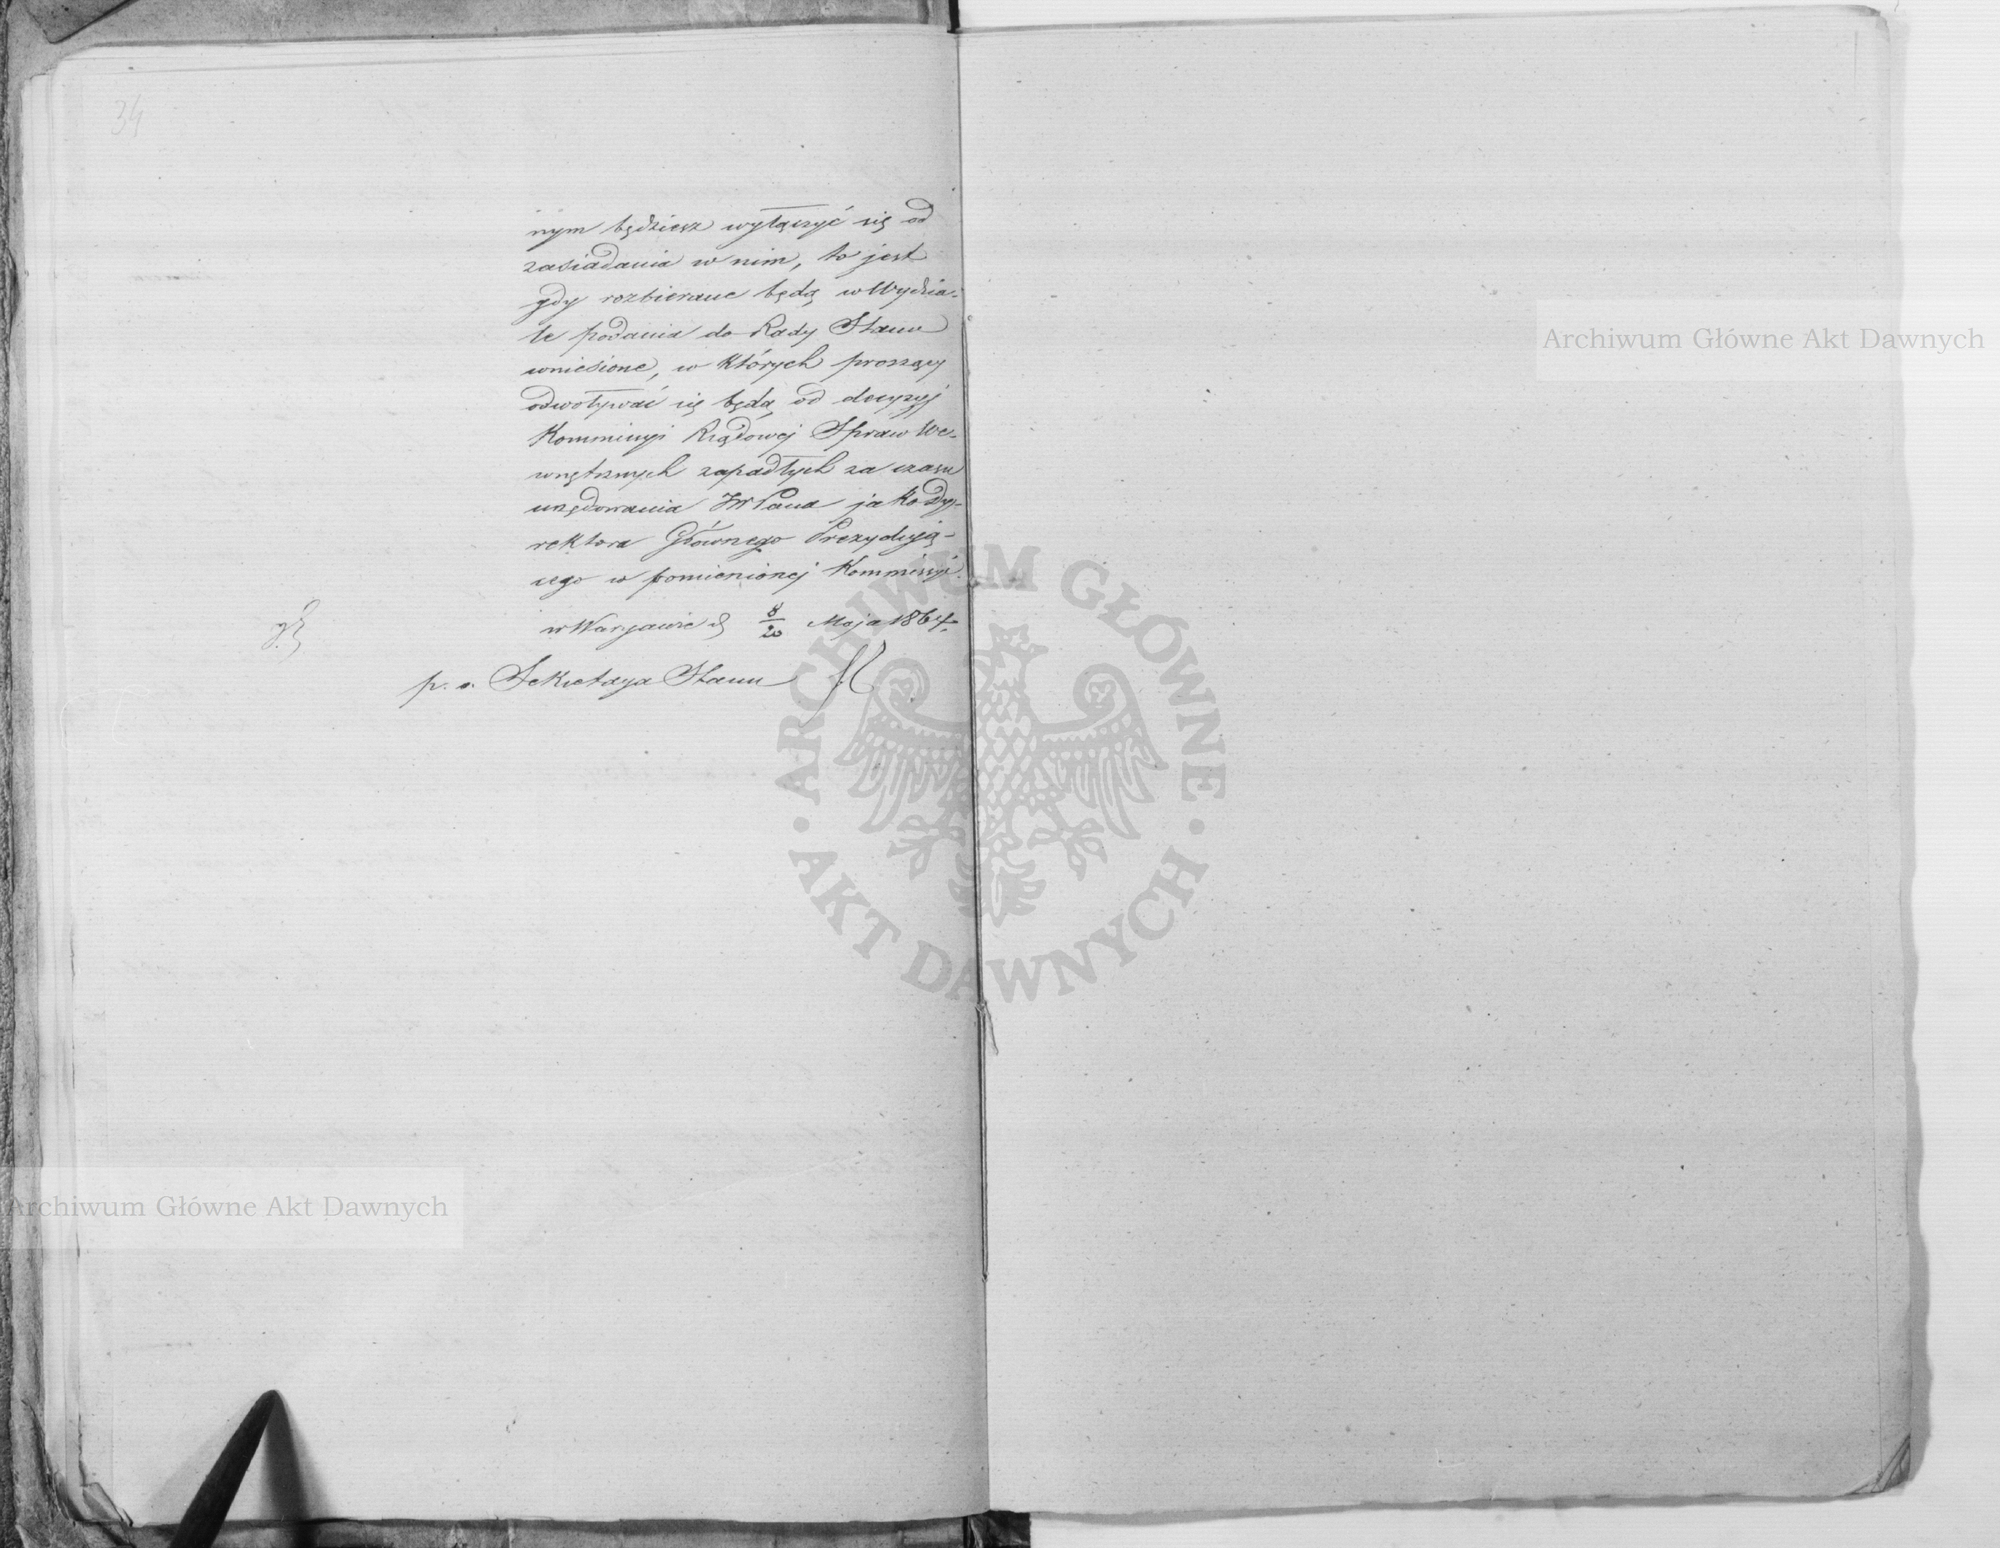 34
nym będziesz wyłączyć się od
zasiadania w nim, to jest
gdy rozbierane będą w Wydzia-
le podania do Rady Stanu
wniesione, w których proszący
odwoływać się będą od decyzyj
Kommissyi Rządowej Spraw We-
wnętrznych zapadłych za czasu
urzędowania JW Pana jako Dy-
rektora Głównego Prezydują-
cego w pomienionej Kommissyi.
w Warszawie d 8/20 Maja 1864.
p. o. Sekretarza Stanu
Archiwum Główne Akt Dawnych
ARCHIWUM GŁÓWNE · AKT DAWNYCH ·
Archiwum Główne Akt Dawnych